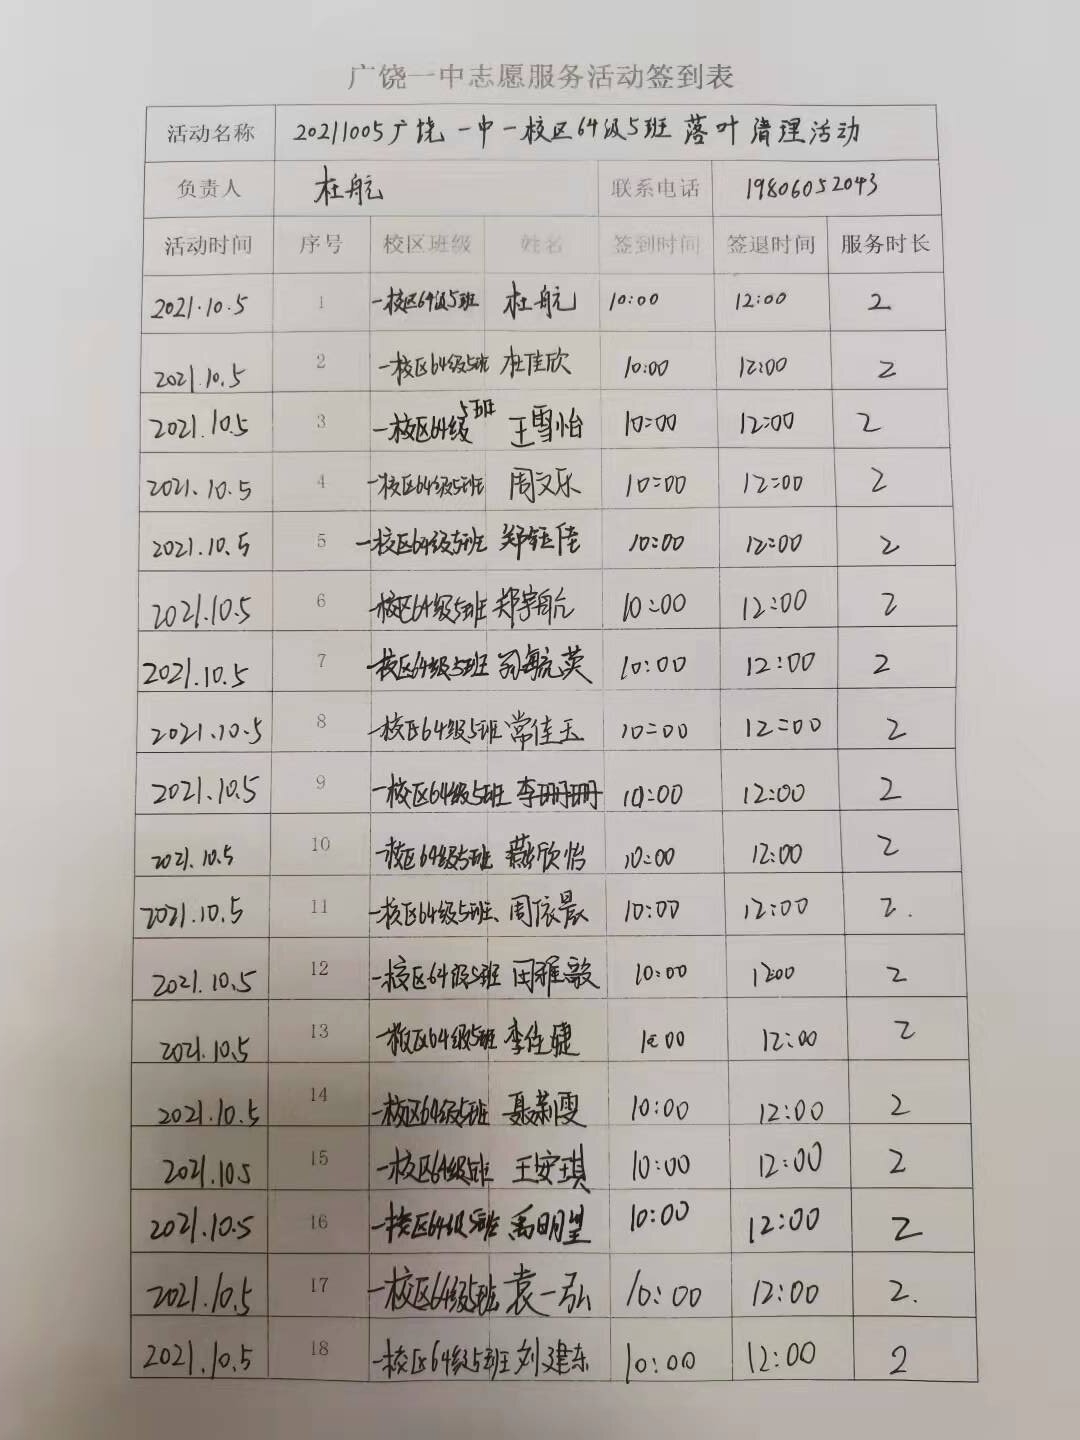 广饶一中志愿服务活动签到表
活动名称 20211005广饶一中一校区64级5班落叶清理活动
负责人 杜航 联系电话 19806052043
活动时间 序号 校区班级 姓名 签到时间 签退时间 服务时长
2021.10.5 1 一校区64级5班 杜航 10:00 12:00 2
2021.10.5 2 一校区64级5班 杜佳欣 10:00 12:00 2
2021.10.5 3 一校区64级5班 王雪怡 10:00 12:00 2
2021.10.5 4 一校区64级5班 周文乐 10:00 12:00 2
2021.10.5 5 一校区64级5班 郑钰佳 10:00 12:00 2
2021.10.5 6 一校区64级5班 郑宇航 10:00 12:00 2
2021.10.5 7 一校区64级5班 10:00 12:00 2
2021.10.5 8 一校区64级5班 常佳玉 10:00 12:00 2
2021.10.5 9 一校区64级5班 李珊珊 10:00 12:00 2
2021.10.5 10 一校区64级5班 燕欣怡 10:00 12:00 2
2021.10.5 11 一校区64级5班、周依晨 10:00 12:00 2.
2021.10.5 12 一校区64级5班 10:00 1200 2
2021.10.5 13 一校区64级5班 李佳婕 10:00 12:00 2
2021.10.5 14 一校区64级5班 10:00 12:00 2
2021.10.5 15 一校区64级5班 王安琪 10:00 12:00 2
2021.10.5 16 一校区64级5班 禹明星 10:00 12:00 2
2021.10.5 17 一校区64级5班 袁一弘 10:00 12:00 2.
2021.10.5 18 一校区64级5班 刘建东 10:00 12:00 2